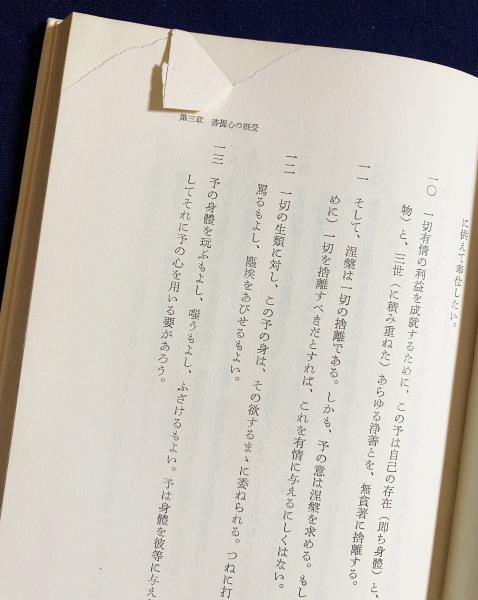 第三章　菩提心の摂受
に供えて奉仕したい。
一〇　一切有情の利益を成就するために、この予は自己の存在（即ち身體）と、
物）と、三世（に積み重ねた）あらゆる浄善とを、無貪著に捨離する。
一一　そして、涅槃は一切の捨離である。しかも、予の意は涅槃を求める。もし
めに）一切を捨離すべきだとすれば、これを有情に与えるにしくはない。
一二　一切の生類に対し、この予の身は、その欲するまゝに委ねられる。つねに打
罵るもよし、塵埃をあびせるもよい。
一三　予の身體を玩ぶもよし、嗤うもよし、ふざけるもよい。予は身體を彼等に与え
してそれに予の心を用いる要があろう。